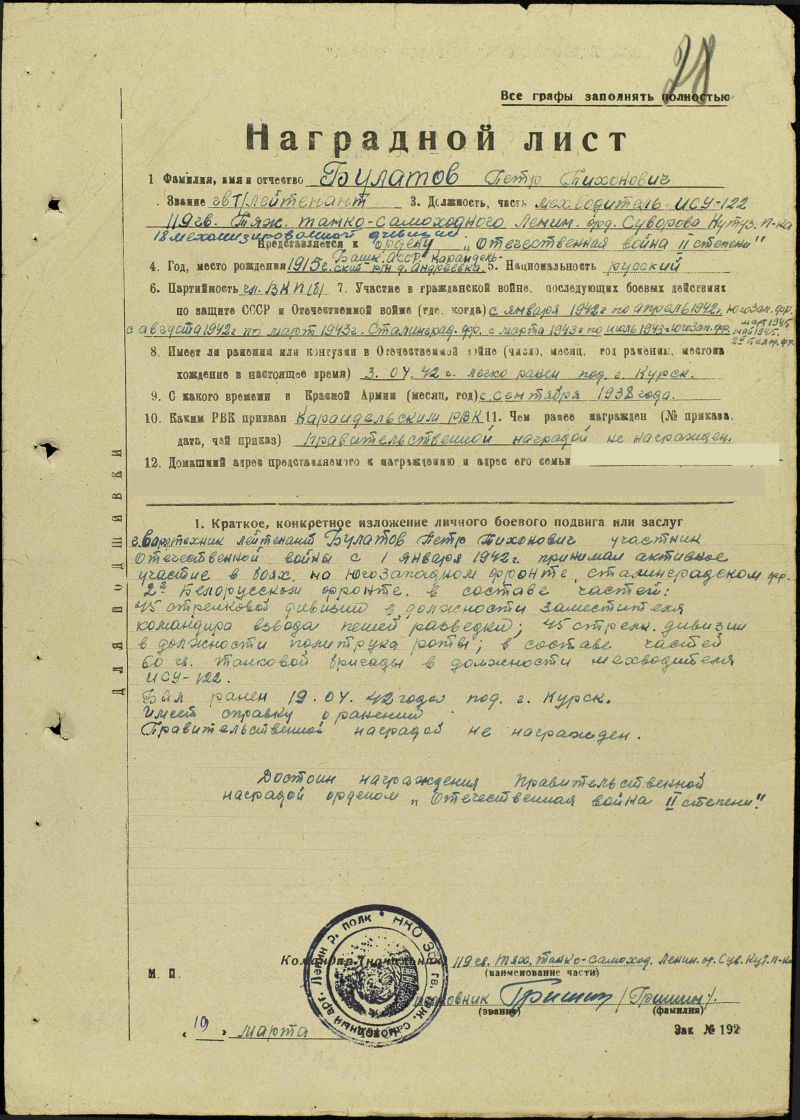 78
Все графы заполнять полностью
Наградной лист
1 Фамилия, имя и отчество Булатов Петр Тихонович
. Звание гвт/лейтенант 3. Должность, часть мехводитель ИСУ-122
119 гв. тяж. танко-самоходного Ленин. орд. Суворова Кутуз. п-ка
18 механизированной дивизии
Представляется к ордену „Отечественная война II степени"
4. Год, место рождения 1915 г. Башк. АССР Караидель-
ский р/н д. Андреевка 5. Национальность русский
6. Партийность чл. ВКП(б) 7. Участие в гражданской войне, последующих боевых действиях
по защите СССР и Отечественной войне (где, когда) с января 1942 г. по апрель 1942 г. Югозап. фр.
с августа 1942 г. по март 1943 г. Сталинград. фр. с марта 1943 г. по июль 1943 г. Югозап. фр. март 1945
май 1945.
2й Белор. фр.
8. Имеет ли ранения или контузии в Отечественной войне (число, месяц, год ранения, местона
хождение в настоящее время) 3. 04. 42 г. легко ранен под. г. Курск.
9. С какого времени в Красной Армии (месяц, год) с сентября 1938 года.
10. Каким РВК призван Караидельским РВК 11. Чем ранее награжден (№ приказа,
дата, чей приказ) Правительственной наградой не награжден.
12. Домашний адрес представляемого к награждению и адрес его семьи
1. Краткое, конкретное изложение личного боевого подвига или заслуг
техник лейтенант Булатов Петр Тихонович участник
Отечественной войны с 1 января 1942 г. принимал активное
участие в боях, на Югозападном фронте, сталинградском фр.
2й Белорусском фронте. в составе частей:
45 стрелковой дивизии в должности заместителя
командира взвода пешей разведки; 45 стрелк. дивизии
в должности политрука роты; в составе частей
60 гв. танковой бригады в должности мехводителя
ИСУ-122.
Был ранен 19. 04. 42 года под. г. Курск.
Имеет справку о ранении
Правительственной наградой не награжден.
Достоин награждения Правительственной
наградой орденом „Отечественная война II степени".
ДЛЯ ПОДШИВКИ
НКО гв. тяж. самоходный арт. Ленин р. полк
Командир (начальник) 119 гв. тяж. танко-самоход. Ленин. ор. Сув. Кут. п-ка
М. П.
(наименование части)
Гришин (Гришин).
(звание) (фамилия)
„ 19 „ марта
Зак № 192